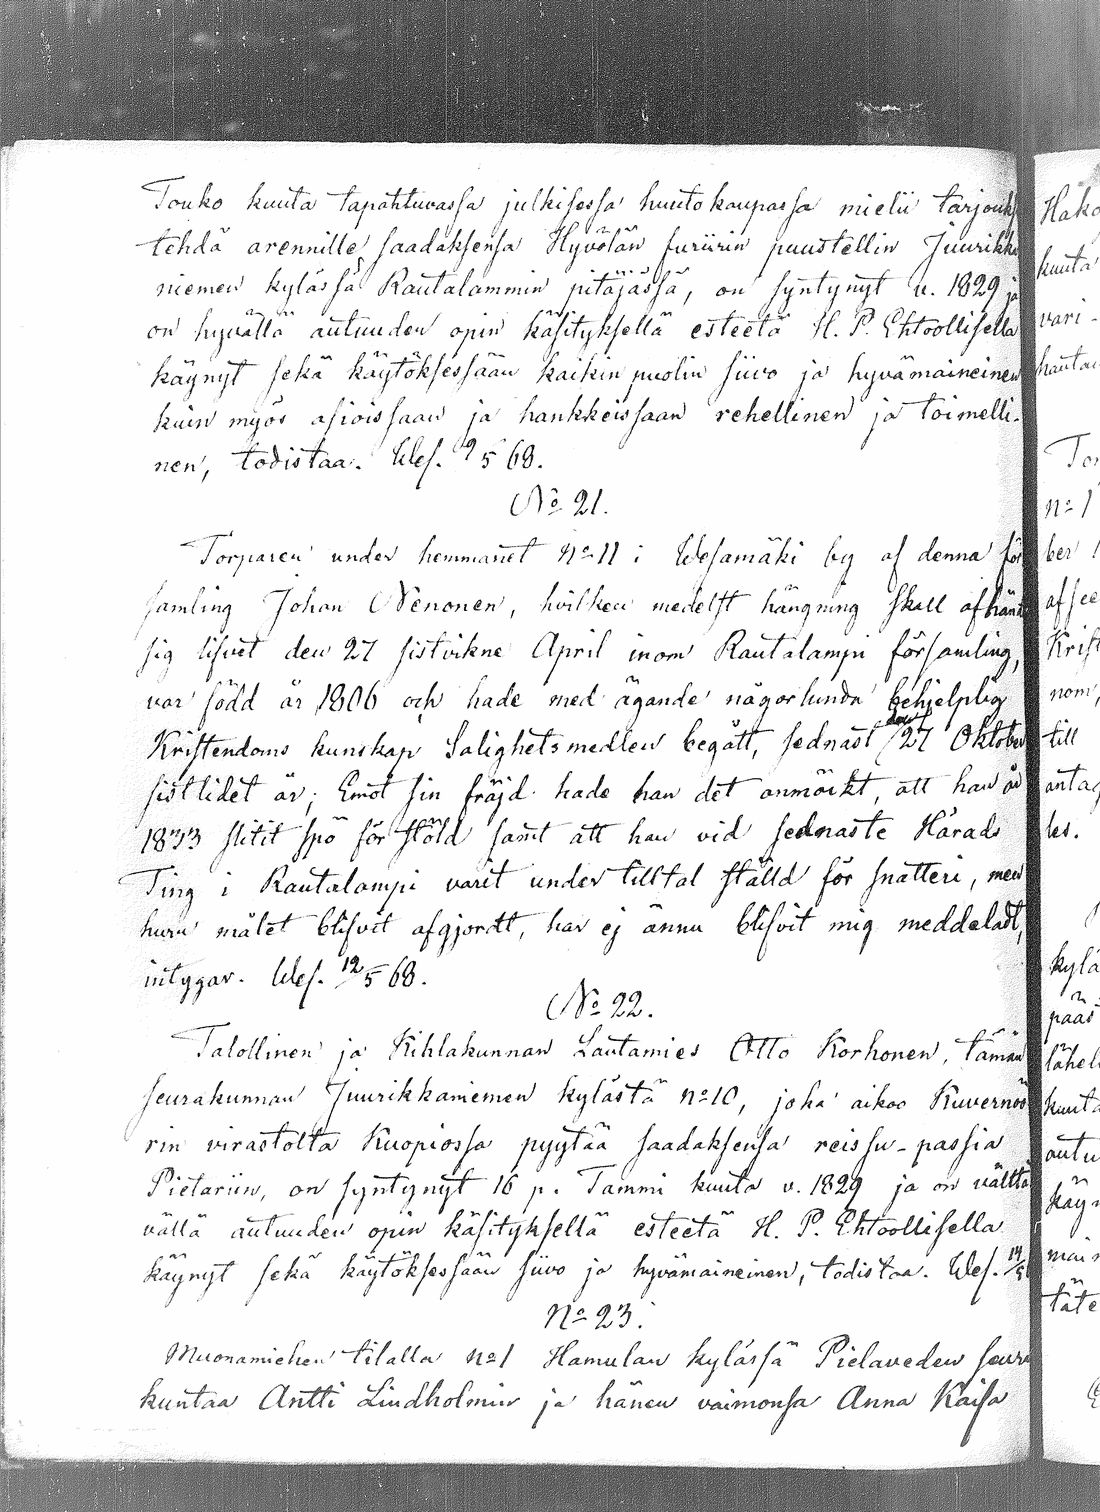 Touko kuuta tapahtuvassa julkisessa huutokaupassa mielii tarjouks
tehdä arennille saadaksensa Hyvölän furiirin puustellin Juurikka
niemen kylässä Rautalammin pitäjässä, on syntynyt v. 1829 ja
on hyvällä autuuden opin käsityksellä esteetä H. P. Ehtoollisella
käynyt sekä käytöksessään kaikin puolin siivo ja hyvämaineinen
kuin myös asioissaan ja hankkeissaan rehellinen ja toimelli-
nen, todistaa. Wes. 9/5 68.
No 21.
Torparen under hemmanet No 11 i Wesamäki by af denna för
samling Johan Nenonen, hvilken medelst hängning skall afhänd
sig lifvet den 27 sistvikne April inom Rautalampi församling,
var född år 1806 och hade med ägande någorlunda behjelplig
Kristendoms kunskap Salighetsmedlen begått, sednast den 27 Oktober
sistlidet år; Emot sin fräjd hade han det anmärkt, att han år
1833 slitit spö för stöld samt att han vid sednaste Härads
Ting i Rautalampi varit under tilltal ställd för snatteri, men
huru målet blifvit afgjordt, har ej ännu blifvit mig meddeladt,
intygar. Wes. 12/5 68.
No 22.
Talollinen ja Kihlakunnan Lautamies Otto Korhonen, tämän
seurakunnan Juurikkaniemen kylästä No 10, joka aikoo Kuvernöö
rin virastolta Kuopiossa pyytää saadaksensa reissu-passia
Pietariin, on syntynyt 16 p. Tammi kuuta v. 1829 ja on välttä
vällä autuuden opin käsityksellä esteetä H. P. Ehtoollisella
käynyt sekä käytöksessään siivo ja hyvämaineinen, todistaa. Wes. 14/5
No 23.
Muonamiehen tilalla No 1 Hamulan kylässä Pielaveden seura
kuntaa Antti Lindholmin ja hänen vaimonsa Anna Kaisa
Hako
kuuta
vari-
hautau
Tor
No 1
ber
afsee
Krist
nom,
till
antag
les.
kylä
pääs
lähel
kuuta
autu
käyn
main
täte